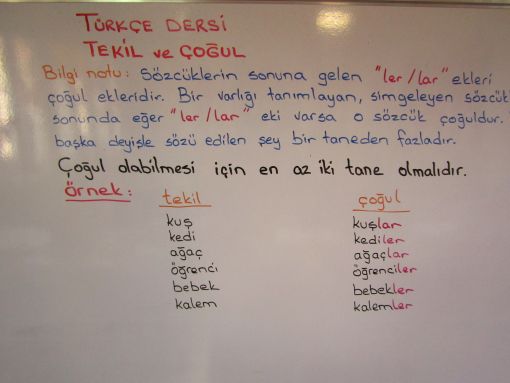 TÜRKÇE DERSİ
TEKİL ve ÇOĞUL
Bilgi notu: Sözcüklerin sonuna gelen "ler/lar" ekleri
çoğul ekleridir. Bir varlığı tanımlayan, simgeleyen sözcük
sonunda eğer "ler/lar" eki varsa o sözcük çoğuldur.
başka deyişle sözü edilen şey bir taneden fazladır.
Çoğul olabilmesi için en az iki tane olmalıdır.
Örnek: tekil çoğul
kuş kuşlar
kedi kediler
ağaç ağaçlar
öğrenci öğrenciler
bebek bebekler
kalem kalemler